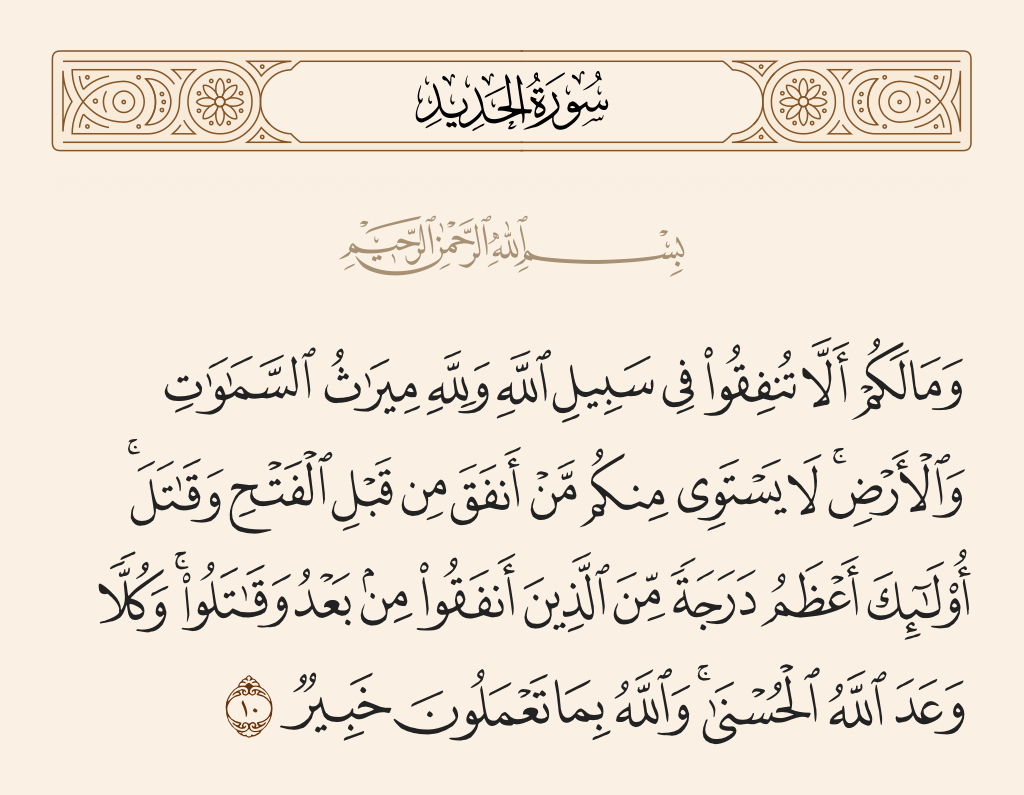 سُورَةُ الحَدِيدِ
بِسْمِ ٱللَّهِ ٱلرَّحْمَٰنِ ٱلرَّحِيمِ
وَمَا لَكُمْ أَلَّا تُنفِقُوا۟ فِى سَبِيلِ ٱللَّهِ وَلِلَّهِ مِيرَٰثُ ٱلسَّمَٰوَٰتِ
وَٱلْأَرْضِ ۚ لَا يَسْتَوِى مِنكُم مَّنْ أَنفَقَ مِن قَبْلِ ٱلْفَتْحِ وَقَٰتَلَ ۚ
أُو۟لَٰٓئِكَ أَعْظَمُ دَرَجَةً مِّنَ ٱلَّذِينَ أَنفَقُوا۟ مِنۢ بَعْدُ وَقَٰتَلُوا۟ ۚ وَكُلًّا
وَعَدَ ٱللَّهُ ٱلْحُسْنَىٰ ۚ وَٱللَّهُ بِمَا تَعْمَلُونَ خَبِيرٌ ١٠